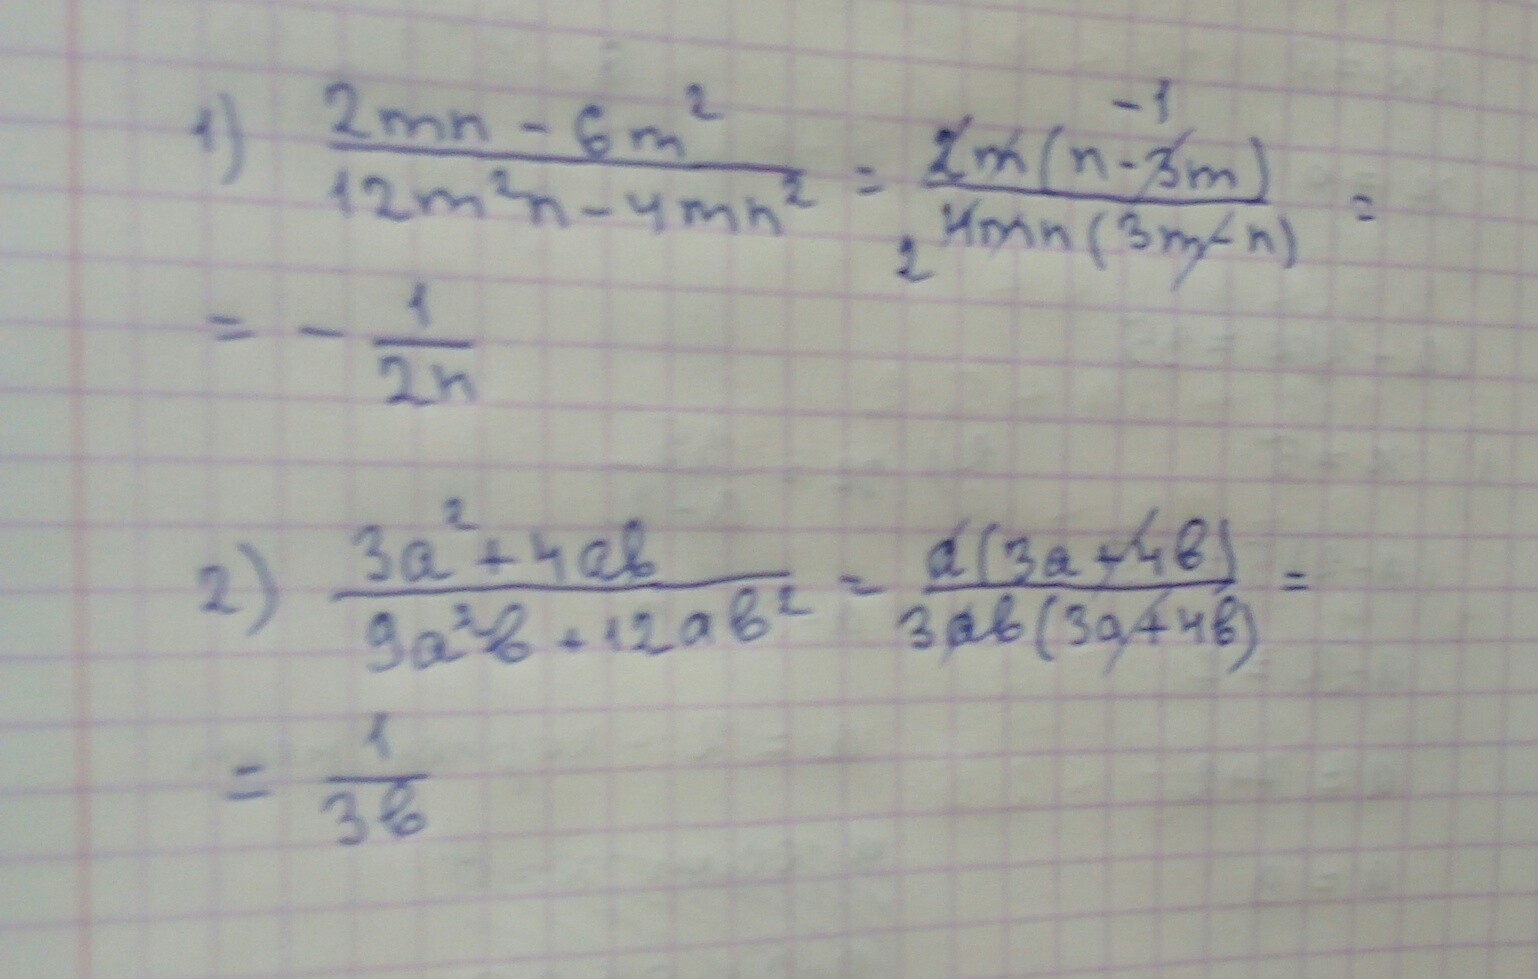 1) (2mn - 6m²)/(12m²n - 4mn²) = (2m(n - 3m))/(4mn(3m - n)) = -1 2
= - 1/(2n)
2) (3a² + 4ab)/(9a²b + 12ab²) = (a(3a + 4b))/(3ab(3a + 4b)) =
= 1/(3b)